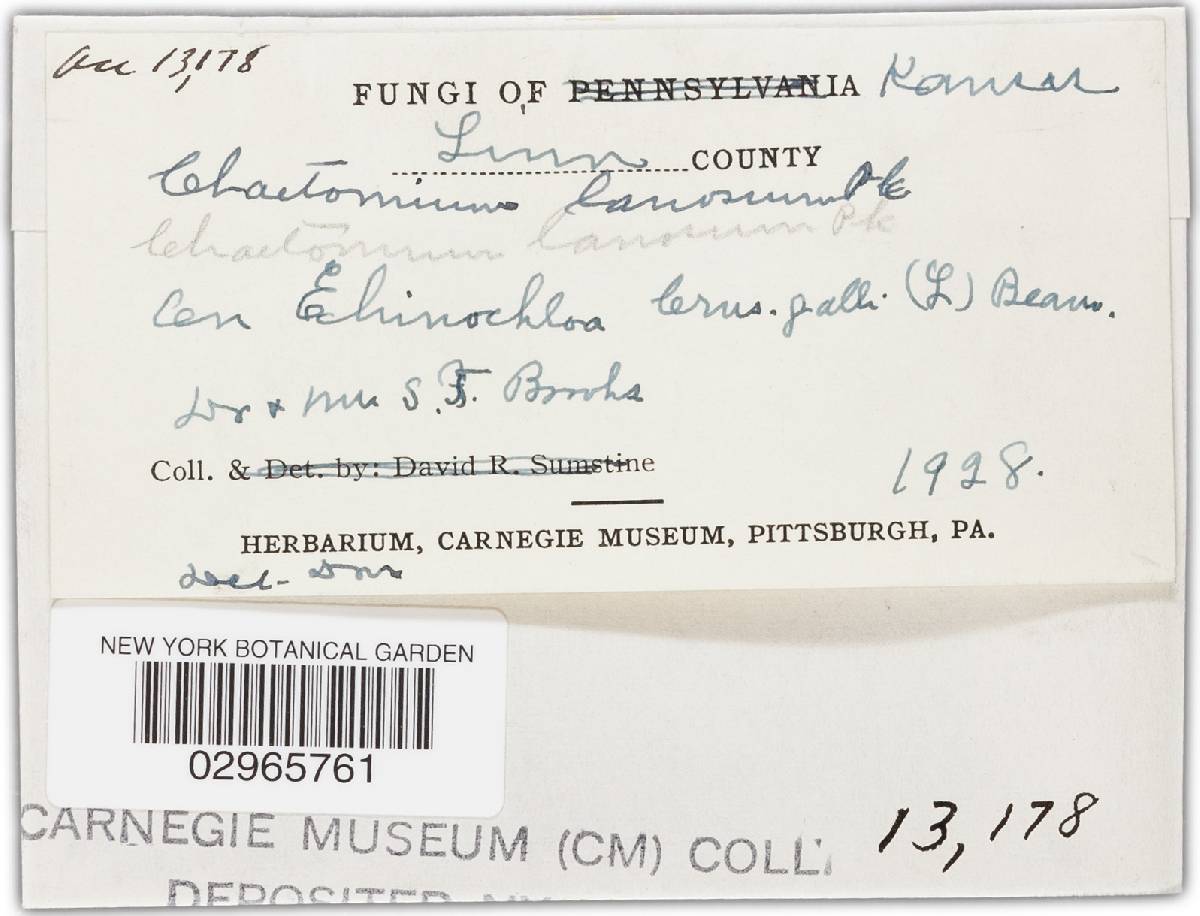 Acc 13,178
FUNGI OF PENNSYLVANIA Kansas
Linn COUNTY
Chaetomium lanosum Pk
Chaetomium lanosum Pk
On Echinochloa Crus-galli (L) Beauv.
Dr & Mrs S. T. Brooks
Coll. & Det. by: David R. Sumstine
1928.
HERBARIUM, CARNEGIE MUSEUM, PITTSBURGH, PA.
NEW YORK BOTANICAL GARDEN
02965761
CARNEGIE MUSEUM (CM) COLL.
13,178
DEPOSITED NY